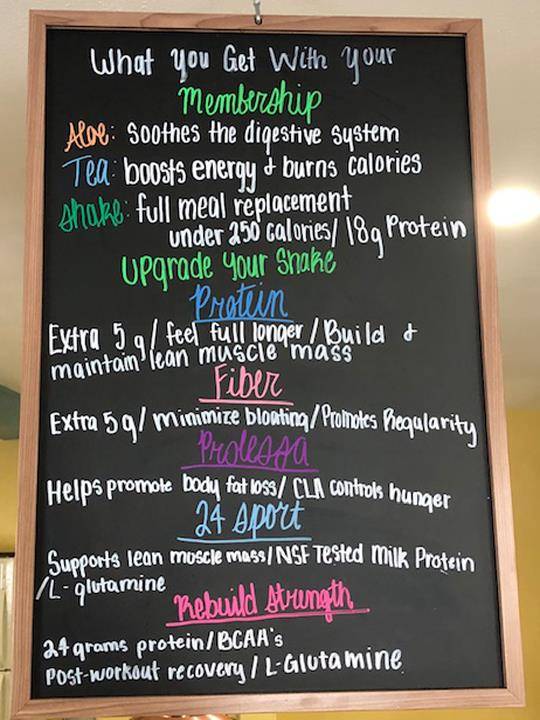 What You Get With Your
Membership
Aloe: Soothes the digestive system
Tea: boosts energy & burns calories
Shake: full meal replacement
under 250 calories/ 18g Protein
Upgrade Your Shake
Protein
Extra 5g/ feel full longer/Build &
maintain lean muscle mass
Fiber
Extra 5g/ minimize bloating/Promotes Regularity
Prolessa
Helps promote body fat loss/ CLA controls hunger
24 Sport
Supports lean muscle mass/NSF Tested Milk Protein
/L-glutamine
Rebuild Strength
24 grams protein/BCAA's
Post-workout recovery/L-Glutamine